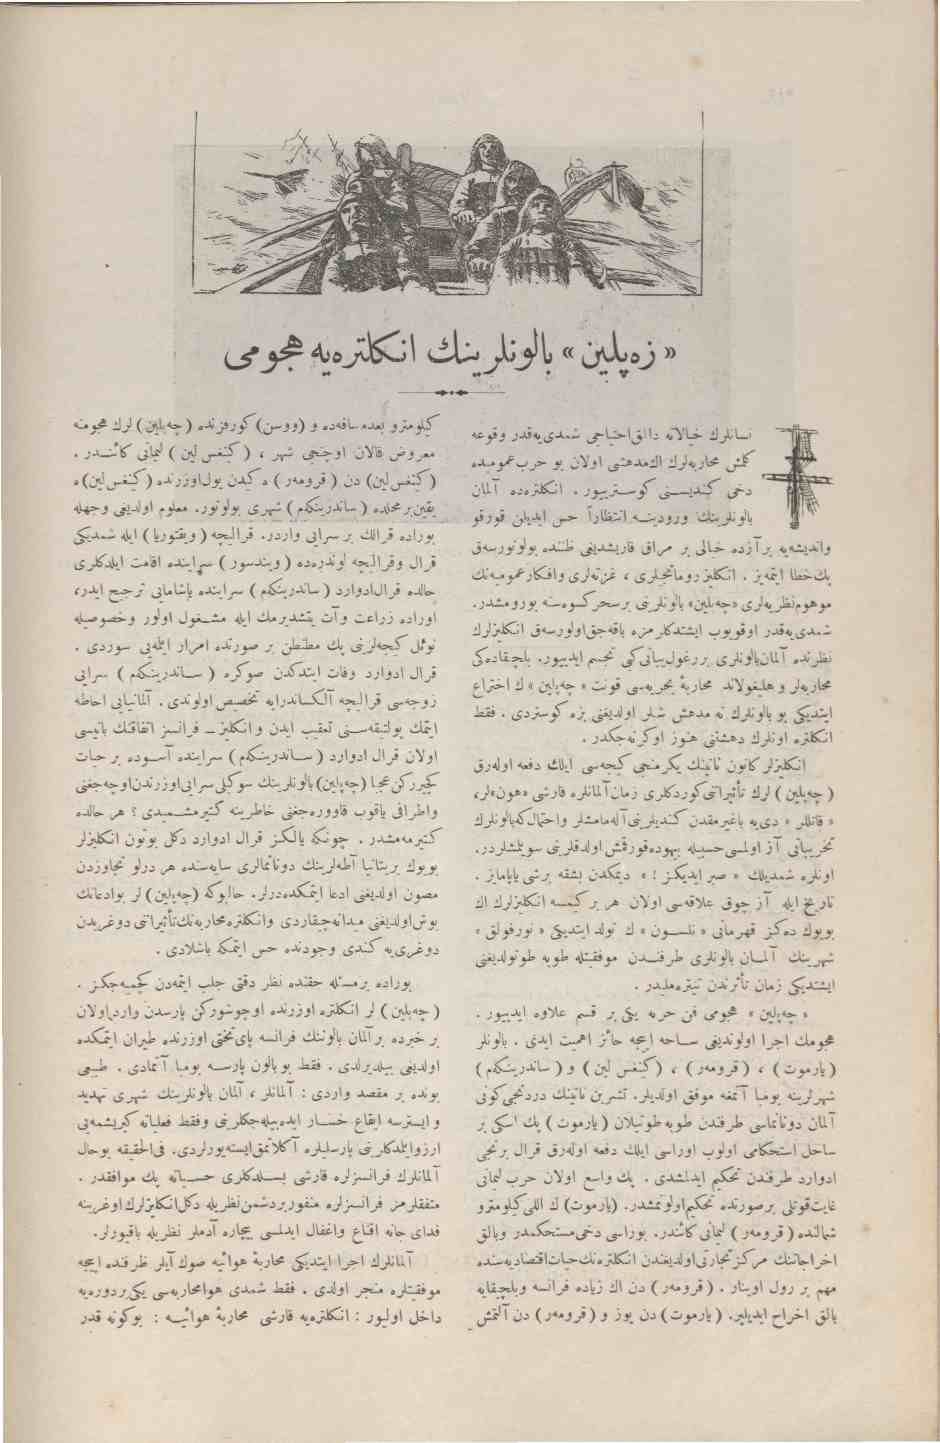 « زه‌پلین » بالونلرینك انكلتره‌یه هجومی
نسانلرك خیالاته دالق احتیاجی شمدی‌یه‌قدر وقوعه
كلمش محاربه‌لرك اك‌مدهشی اولان بو حرب عمومیده
دخی كندیسنی كوستریبور . انكلتره‌ده آلمان
بالونلرینك ورودینه انتظاراً حس ایدیلن قورقو
واندیشه‌یه برآزده خیالی بر مراق قاریشدیغی ظننده بولونورسه‌ق
پك‌خطا ایتمه‌یز . انكلیز رومانجیلری ، غزته‌لری وافكارعمومیه‌نك
موهوم‌نظریه‌لری «چه‌پلین» بالونلرینی برسحركسوه‌سنه بورومشدر.
شمدی‌یه‌قدر اوقویوب ایشتدكلرمزه باقه‌جق‌اولورسه‌ق انكلیزلرك
نظرنده آلمان‌بالونلری بررغول‌یبانی‌كبی تجسم ایدیبور. بلچیقاده‌كی
محاربه‌لر و هلیغولاند محاربهٔ بحریه‌سی قونت « چه‌پلین » ك اختراع
ایتدیكی بو بالونلرك نه مدهش شلر اولدیغنی بزه كوستردی . فقط
انكلتره اونلرك دهشتنی هنوز اوكرنه‌جكدر .
انكلیزلر كانون ثانینك یكرمنجی كیجه‌سی ایلك دفعه اوله‌رق
( چه‌پلین ) لرك تأثیراتنی كوردكلری زمان آلمانلره قارشی «هون»لر،
« قاتللر » دی‌یه باغیرمقدن كندیلرینی آله‌مامشلر واحتمال‌كه‌بالونلرك
تخریباتی آز اولمسی‌حسبیله بیهوده‌قورقمش اولدقلرینی سویلمشلردر.
اونلره شمدیلك « صبر ایدیكز ! » دیمكدن بشقه برشی یاپامایز .
تاریخ ایله آز چوق علاقه‌سی اولان هر بر كیمسه انكلیزلرك اك
بویوك ده‌كز قهرمانی « نلسون » ك تولد ایتدیكی « نورفولق »
شهرینك آلمان بالونلری طرفندن موفقیتله طوپه طوتولدیغنی
ایشتدیكی زمان تأثرندن تیتره‌ملیدر .
« چه‌پلین » هجومی فن حربه یكی بر قسم علاوه ایدیبور .
هجومك اجرا اولوندیغی ساحه اپیجه حائز اهمیت ایدی . بالونلر
( یارموت ) ، ( قرومه‌ر ) ، ( كینغس لین ) و ( ساندرینكهم )
شهرلرینه بومبا آتمغه موفق اولدیلر. تشرین ثانینك دردنجی‌كونی
آلمان دونانماسی طرفندن طوپه‌طوتیلان ( یارموت ) پك اسكی بر
ساحل استحكامی اولوب اوراسی ایلك دفعه اوله‌رق قرال برنجی
ادوارد طرفندن تحكیم ایدلمشدی . پك واسع اولان حرب لیمانی
غایت‌قوتلی برصورتده تحكیم‌اولونمشدر. (یارموت) ك اللی‌كیلومترو
شمالنده ( قرومه‌ر ) لیمانی كائندر. بوراسی دخی‌مستحكمدر وبالق
اخراجاتنك مركز تجارتی‌اولدیغندن انكلتره‌نك حیات‌اقتصادیه‌سنده
مهم بر رول اوینار . ( قرومه‌ر ) دن اك زیاده فرانسه وبلچیقایه
بالق اخراج ایدیلیر. ( یارموت ) دن یوز و ( قرومه‌ر ) دن آلتمش
كیلومترو بعدمسافه‌ده و (ووسن) كورفزنده ( چه‌پلین ) لرك هجومنه
معروض قالان اوچنجی شهر ، ( كینغس لین ) لیمانی كائندر .
( كینغس لین) دن ( قرومه‌ر ) ه كیدن یول‌اوزرنده (كینغس لین) ه
یقین بر محلده ( ساندرینكهم ) شهری بولونور. معلوم اولدیغی وجهله
بوراده قرالك بر سرایی واردر. قرالیچه ( ویقتوریا ) ایله شمدیكی
قرال وقرالیچه لوندره‌ده ( ویندسور ) سراینده اقامت ایلدكلری
حالده قرال‌ادوارد ( ساندرینكهم ) سراینده یاشامایی ترجیح ایدر،
اوراده زراعت وآت یتشدیرمك ایله مشغول اولور وخصوصیله
نوئل كیجه‌لرینی پك مطنطن بر صورتده امرار ایله‌یی سوردی .
قرال ادوارد وفات ایتدكدن صوكره ( ساندرینكهم ) سرایی
زوجه‌سی قرالیچه آلكساندرایه تخصیص اولوندی . آلمانیایی احاطه
ایتمك پولتیقه‌سنی تعقیب ایدن وانكلیز ـ فرانسز اتفاقنك بانیسی
اولان قرال ادوارد ( ساندرینكهم ) سراینده آسوده بر حیات
كچیرركن عجبا (چه‌پلین) بالونلرینك سوكیلی سرایی‌اوزرندن‌اوچه‌جغنی
واطرافی یاقوب قاووره‌جغنی خاطرینه كتیرمشمیدی ؟ هر حالده
كتیرمه‌مشدر . چونكه یالكز قرال ادوارد دكل بوتون انكلیزلر
بویوك بریتانیا آطه‌لرینك دونانمالری سایه‌سنده هر درلو تجاوزدن
مصون اولدیغنی ادعا ایتمكده‌درلر. حالبوكه (چه‌پلین) لر بوادعانك
بوش‌اولدیغنی میدانه‌چیقاردی وانكلتره‌محاربه‌نك‌تأثیراتنی دوغریدن
دوغری‌یه كندی وجودنده حس ایتمكه باشلادی .
بوراده برمسئله حقنده نظر دقتی جلب ایتمه‌دن كچمیه‌جكز .
( چه‌پلین ) لر انكلتره اوزرنده اوچوشوركن پارسدن وارداولان
بر خبرده بر آلمان بالوننك فرانسه پای‌تختی اوزرنده طیران ایتمكده
اولدیغی بیلدیرلدی . فقط بو بالون پارسه بومبا آتمادی . طبیعی
بونده بر مقصد واردی : آلمانلر ، آلمان بالونلرینك شهری تهدید
و ایسترسه ایقاع خسار ایده‌بیله‌جكلرینی وفقط فعلیاته كیریشمه‌یی
ارزوایلدكلرینی پارسلیلره آكلاتمق‌ایسته‌یورلردی. فی‌الحقیقه بوحال
آلمانلرك فرانسزلره قارشی بسلدكلری حسیاته پك موافقدر .
متفقلرمز فرانسزلره منفوربردشمن‌نظریله دكل‌انكلیزلرك اوغرینه
فدای جانه اقناع واغفال ایدلمش بیچاره آدملر نظریله باقیورلر.
آلمانلرك اجرا ایتدیكی محاربهٔ هوائیه صوك آیلر ظرفنده اپیجه
موفقیتلره منجر اولدی . فقط شمدی هوامحاربه‌سی یكی‌بردوره‌یه
داخل اولیور : انكلتره‌یه قارشی محاربهٔ هوائیه : بوكونه قدر